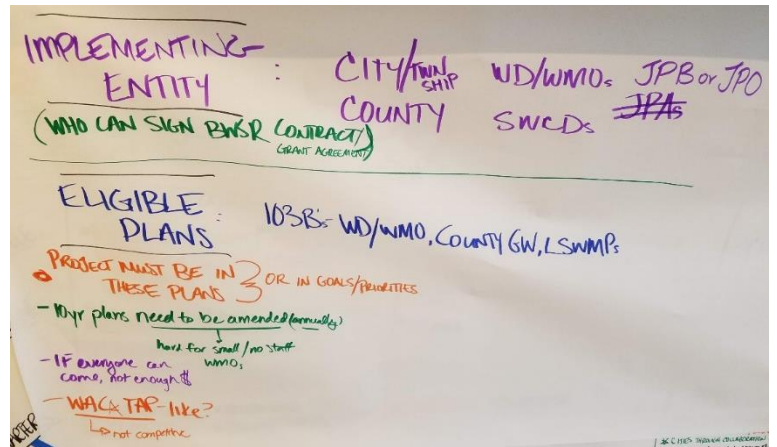 IMPLEMENTING ENTITY : CITY/TWNSHIP WD/WMOs JPB or JPO
COUNTY SWCDs JPAs
(WHO CAN SIGN BWSR CONTRACT/GRANT AGREEMENT)
ELIGIBLE PLANS : 103B's - WD/WMO, COUNTY GW, LSWMPs
PROJECT MUST BE IN THESE PLANS } OR IN GOALS/PRIORITIES
- 10yr plans need to be amended (annually?)
hard for small/no staff WMOs
- IF everyone can come, not enough $
- WACA TAP-like?
not competitive